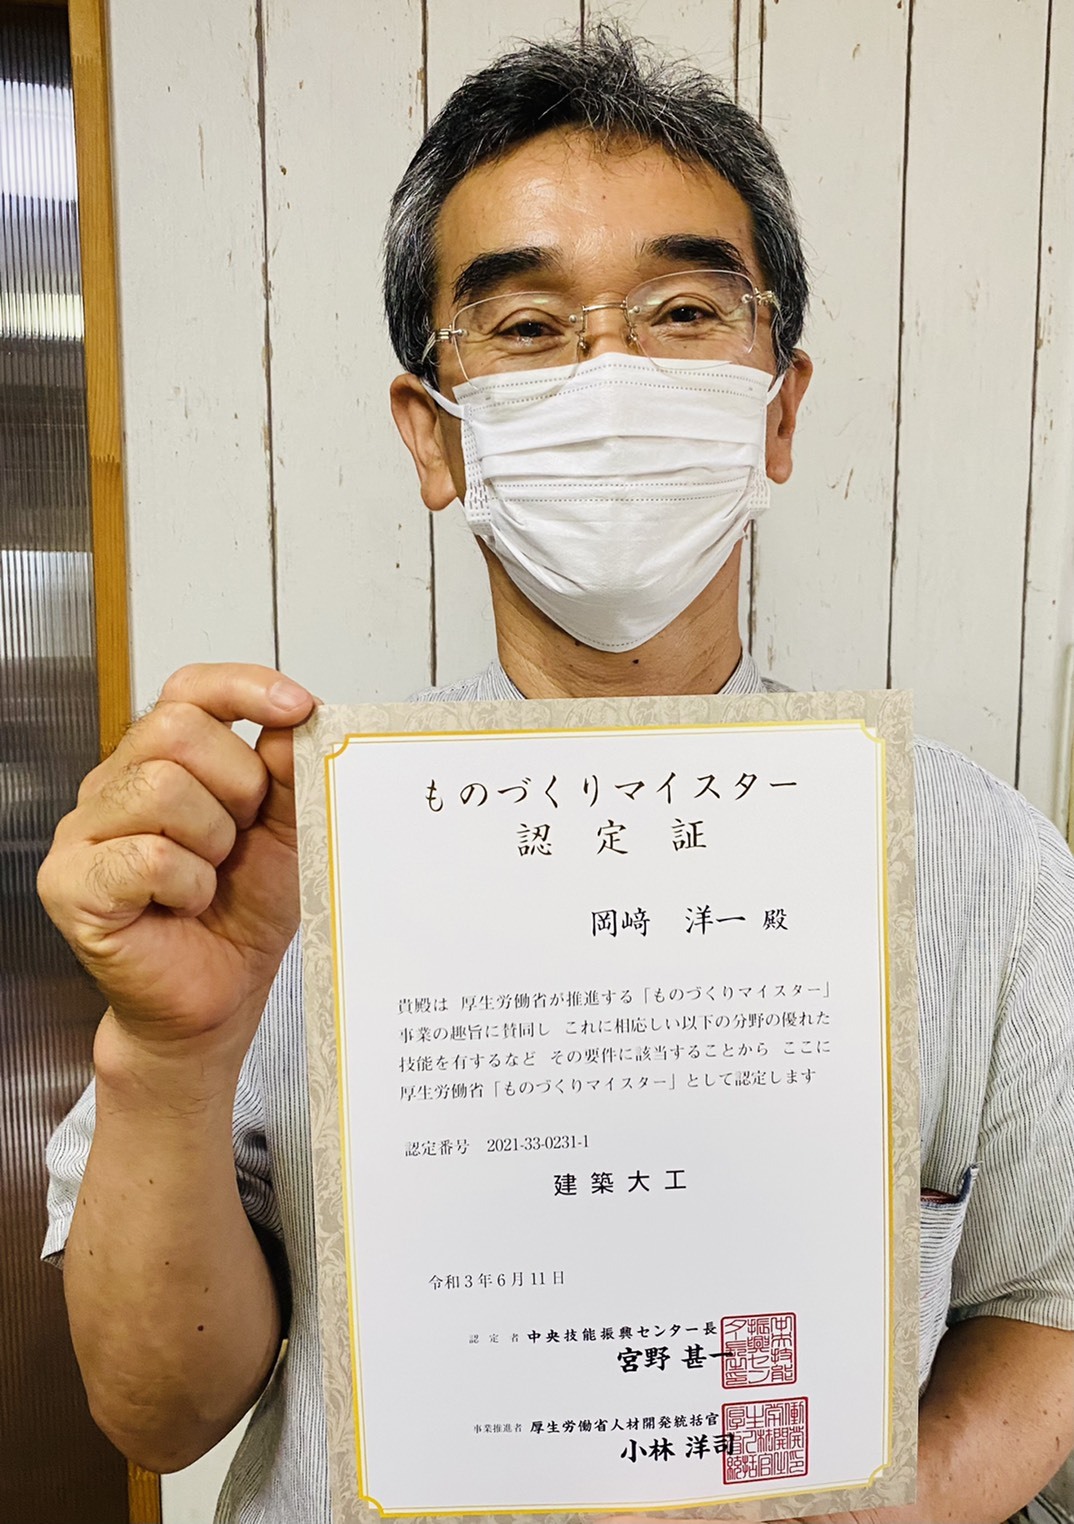 ものづくりマイスター
認定証
岡﨑 洋一 殿
貴殿は 厚生労働省が推進する「ものづくりマイスター」
事業の趣旨に賛同し これに相応しい以下の分野の優れた
技能を有するなど その要件に該当することから ここに
厚生労働省「ものづくりマイスター」として認定します
認定番号 2021-33-0231-1
建築大工
令和3年6月11日
認定者 中央技能振興センター長
宮野 甚一
事業推進者 厚生労働省人材開発統括官
小林 洋司